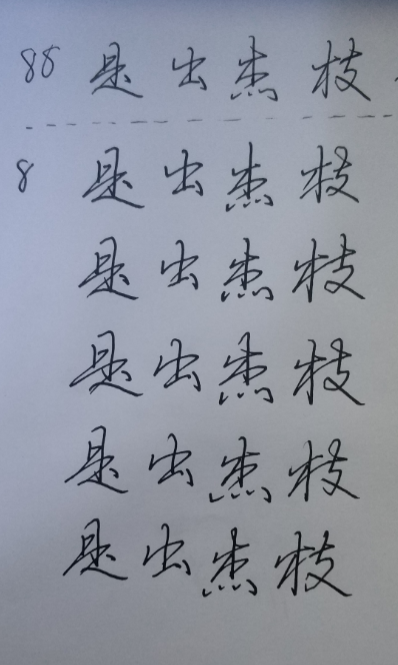 88 是 出 杰 枝
8 是 出 杰 枝
是 出 杰 枝
是 出 杰 枝
是 出 杰 枝
是 出 杰 枝